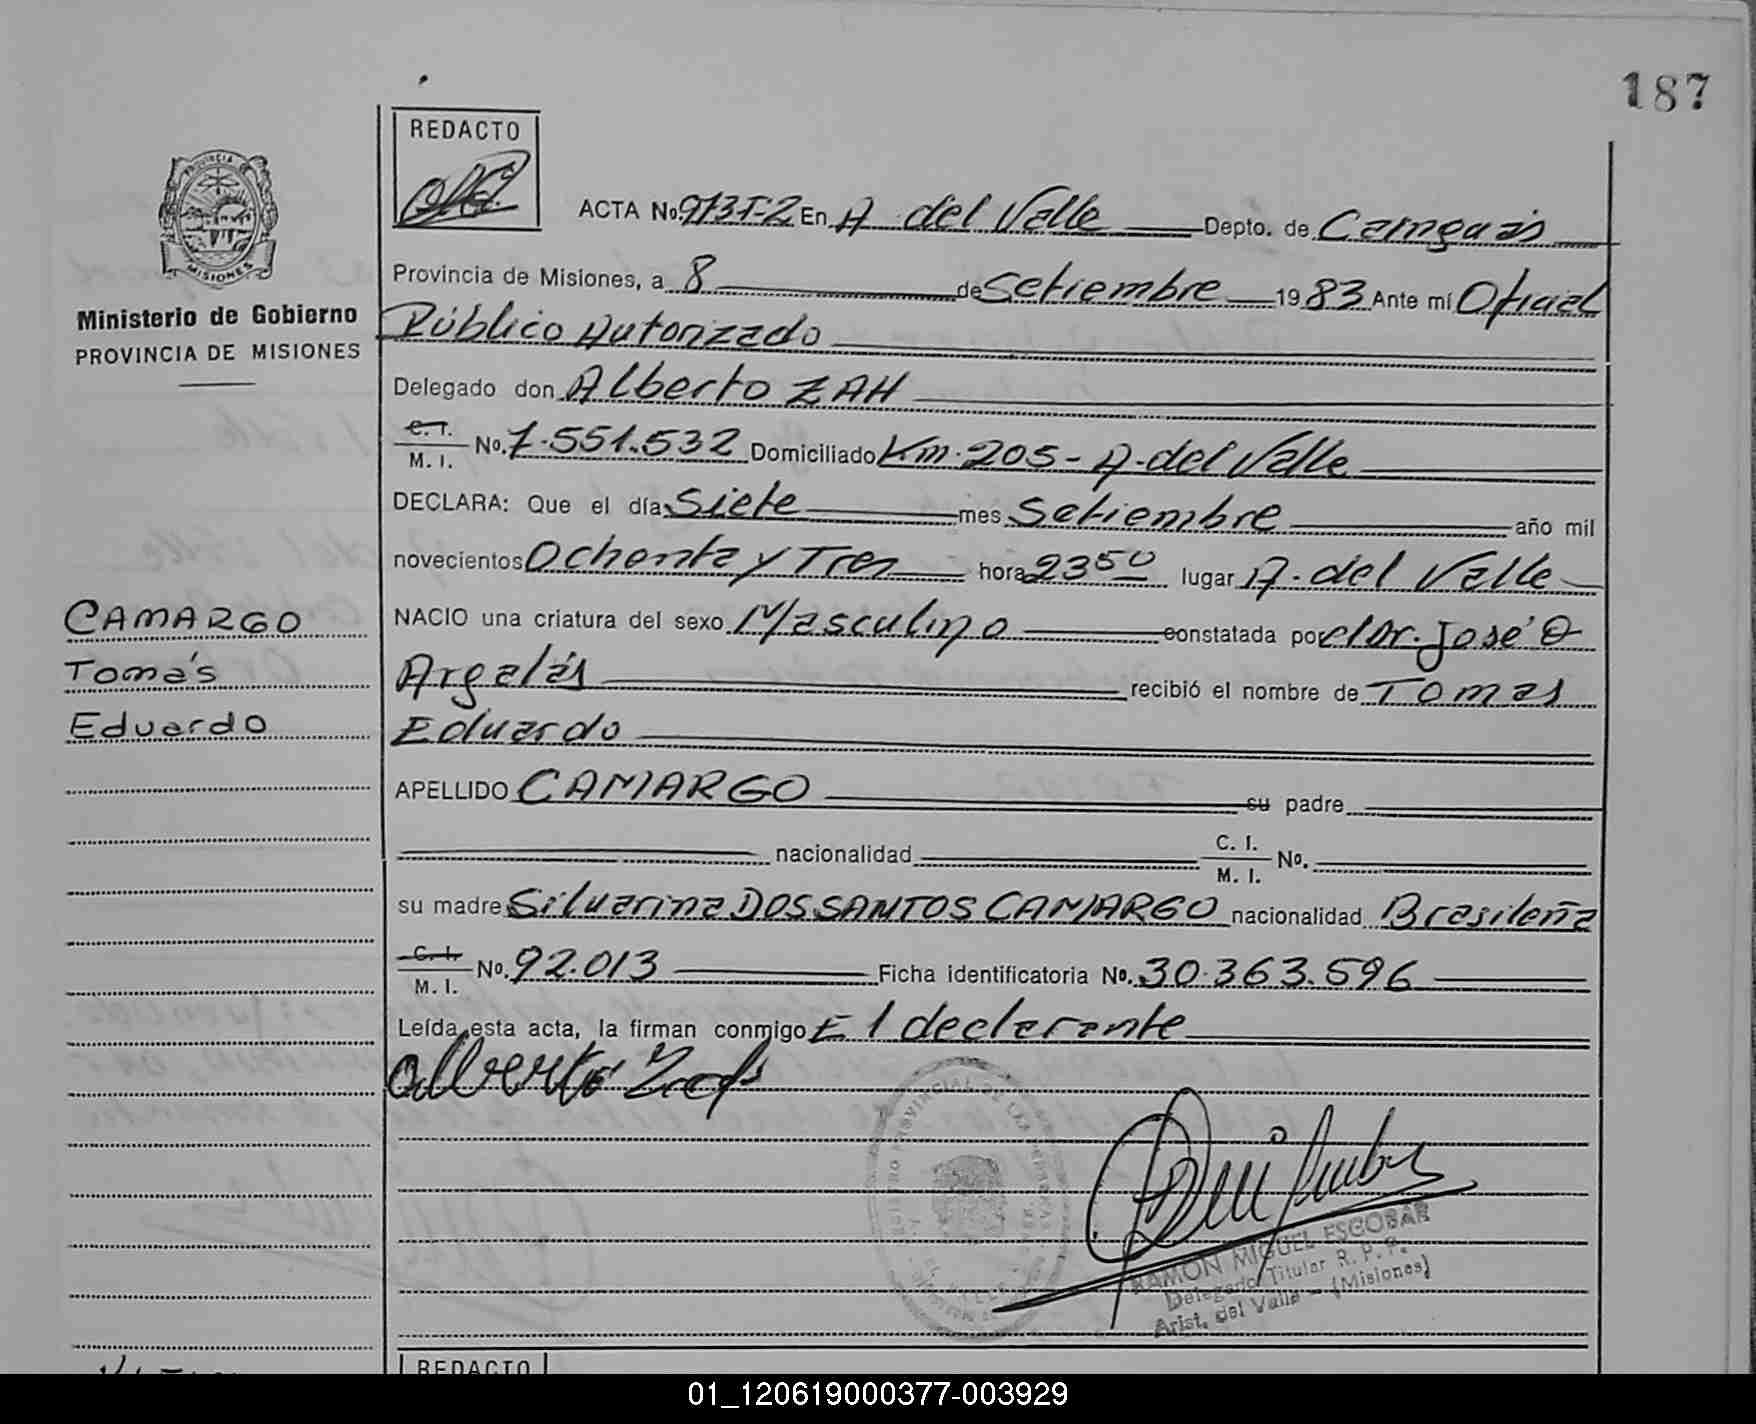 187
REDACTO
PROVINCIA DE
MISIONES
Ministerio de Gobierno
PROVINCIA DE MISIONES
ACTA No. 913T-2 En A. del Valle Depto. de Cainguás
Provincia de Misiones, a 8 de Setiembre 1983 Ante mí Oficial
Público Autorizado
Delegado don Alberto ZAH
C.I.
M. I. No. 7.551.532 Domiciliado Km. 205 - A. del Valle
DECLARA: Que el día Siete mes Setiembre año mil
novecientos Ochenta y Tres hora 23 50 lugar A. del Valle
CAMARGO
Tomás
Eduardo
NACIO una criatura del sexo Masculino constatada por el Dr. José O
Argalás recibió el nombre de Tomas
Eduardo
APELLIDO CAMARGO su padre
nacionalidad C. I.
M. I. No.
su madre Silvarina DOS SANTOS CAMARGO nacionalidad Brasileña
C. I.
M. I. No. 92.013 Ficha identificatoria No. 30.363.596
Leída esta acta, la firman conmigo El declarante
Alberto Zah
RAMON MIGUEL ESCOBAR
Delegado Titular R. P. P.
Arist. del Valle - (Misiones)
REDACTO
01_120619000377-003929